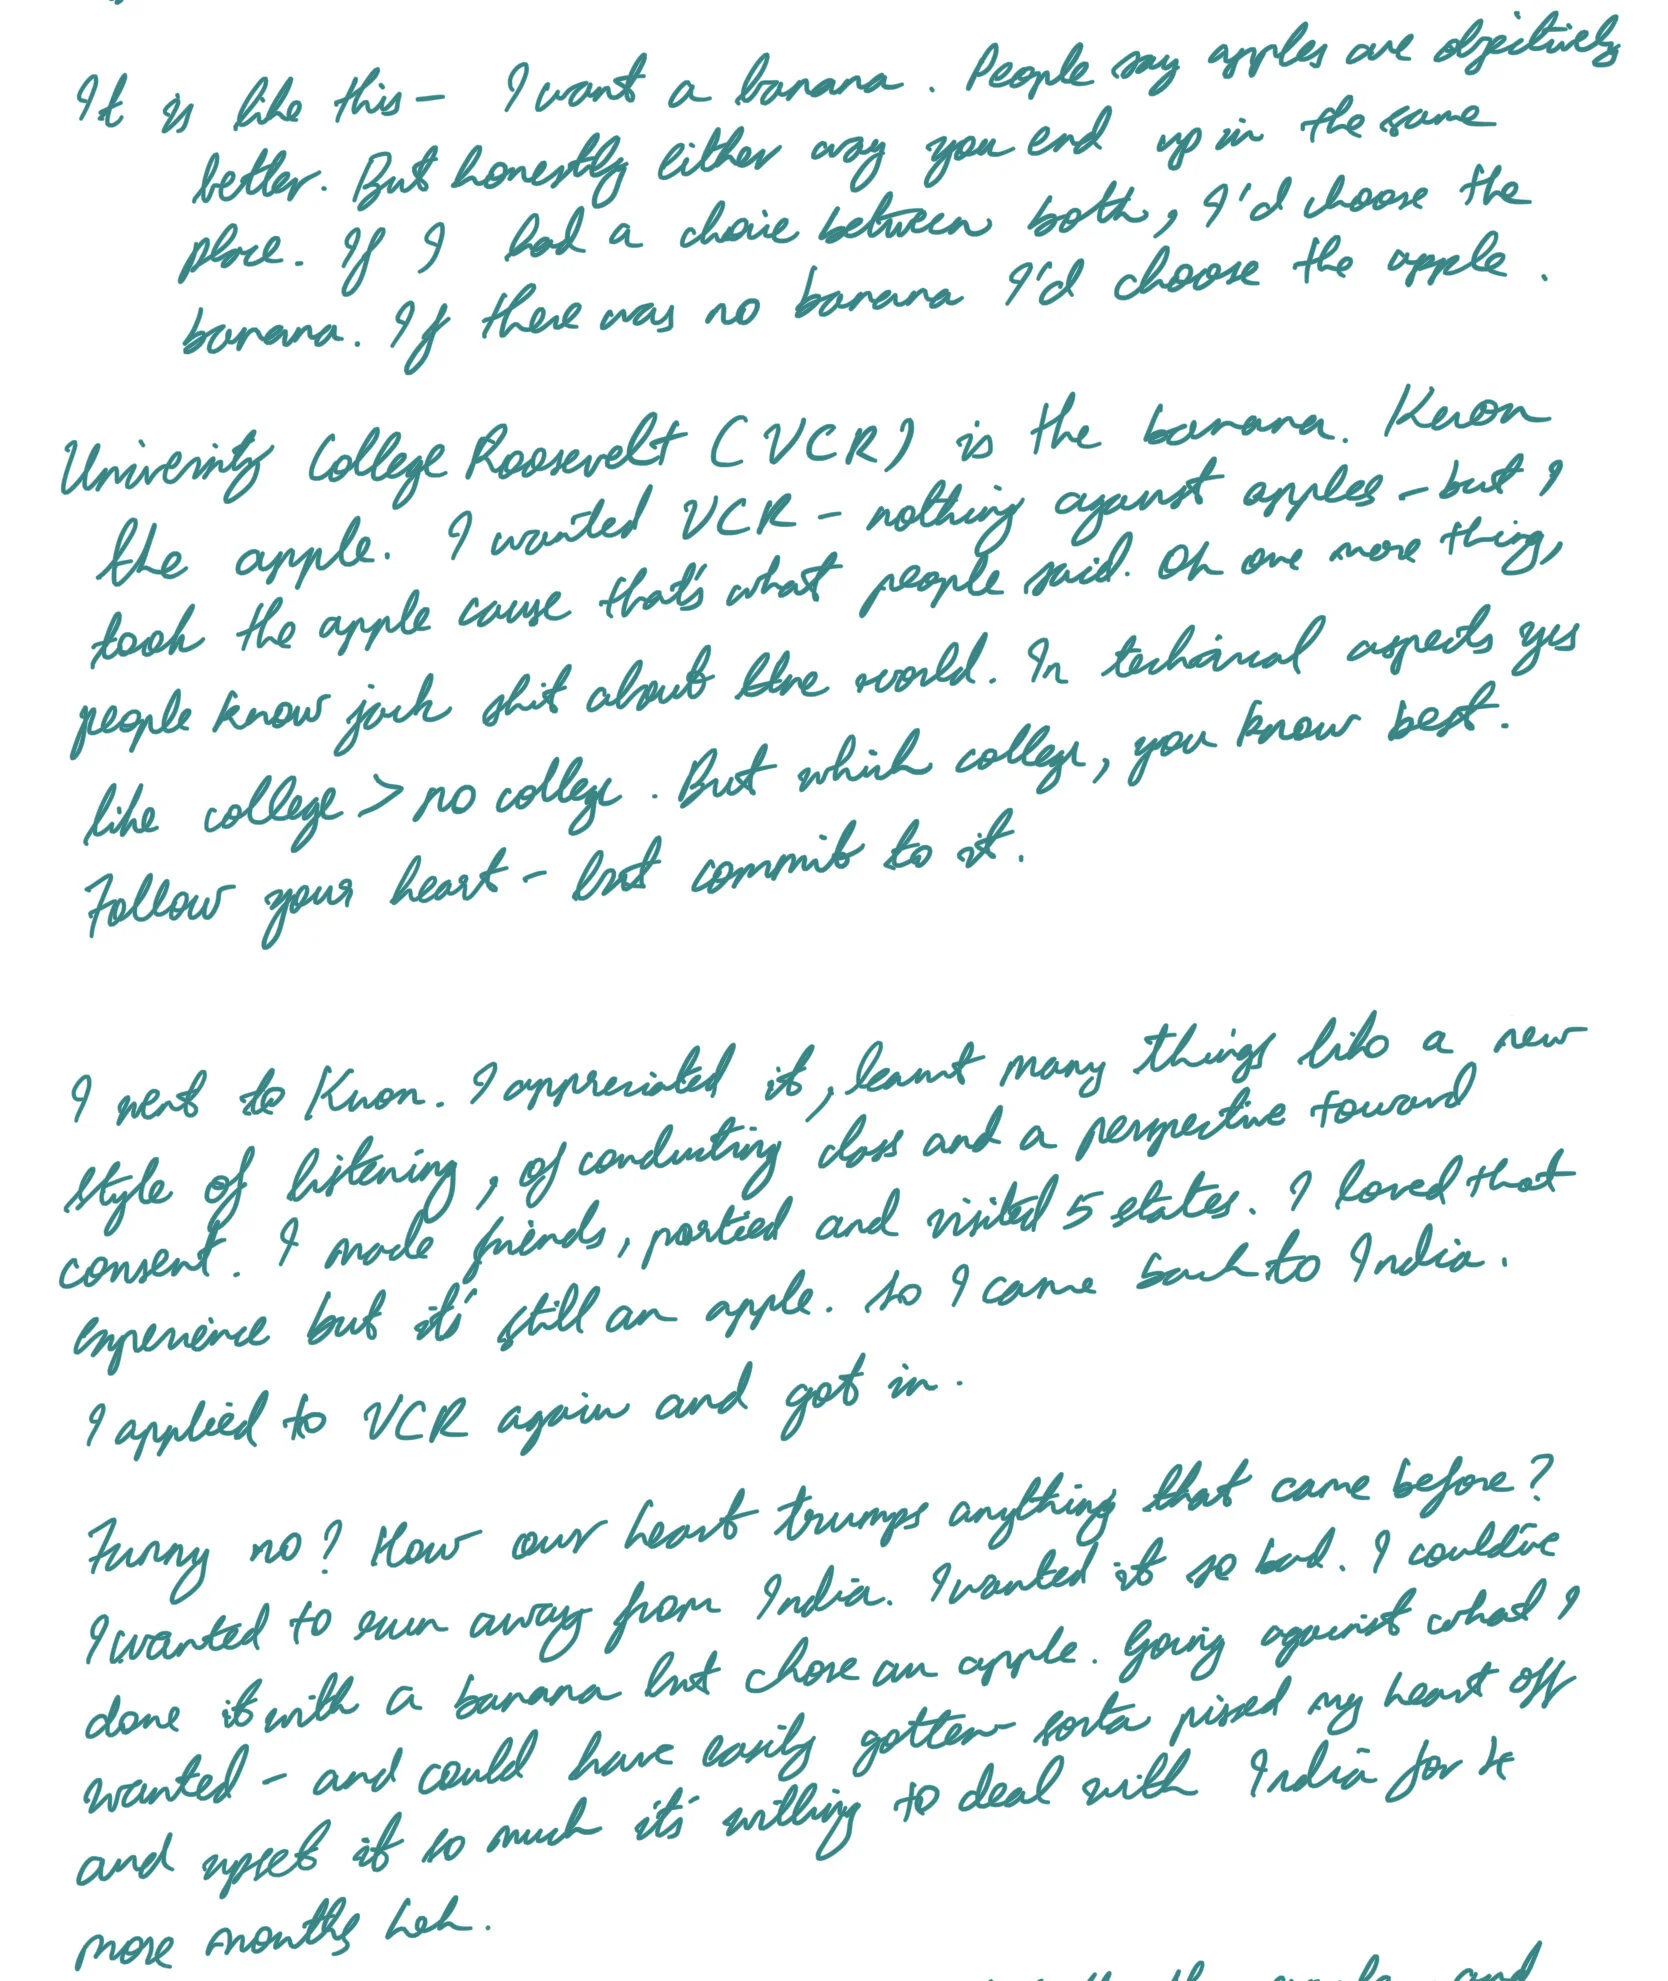 It is like this - I want a banana. People say apples are objectively
better. But honestly either way you end up in the same
place. If I had a choice between both, I'd choose the
banana. If there was no banana I'd choose the apple.
University College Roosevelt (UCR) is the banana. Kenon
the apple. I wanted UCR - nothing against apples - but I
took the apple cause that's what people said. Oh one more thing,
people know jack shit about the world. In technical aspects yes
like college > no college. But which college, you know best.
Follow your heart - but commit to it.
I went to Kenon. I appreciated it, learnt many things like a new
style of listening, of conducting class and a perspective toward
consent. I made friends, partied and visited 5 states. I loved that
experience but it's still an apple. so I came back to India.
I applied to UCR again and got in.
Funny no? How our heart trumps anything that came before?
I wanted to run away from India. I wanted it so bad. I could've
done it with a banana but chose an apple. Going against what I
wanted - and could have easily gotten - sorta pissed my heart off
and upset it so much it's willing to deal with India for 4
more months heh.
and